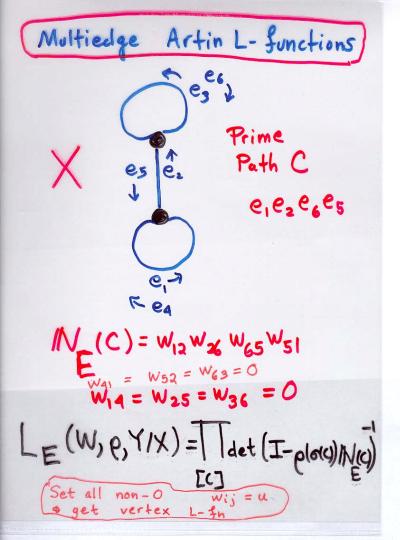 Multiedge Artin L-functions
e6
e3
Prime
Path C
X
e5 e2
e1e2e6e5
e1
e4
N_E(C) = w12 w26 w65 w51
w41 = w52 = w63 = 0
w14 = w25 = w36 = 0
L_E(W, ρ, Y/X) = ∏ det(I-ρ(σ(C))N_E(C))^-1
[C]
Set all non-0 wij = u
& get vertex L-fn